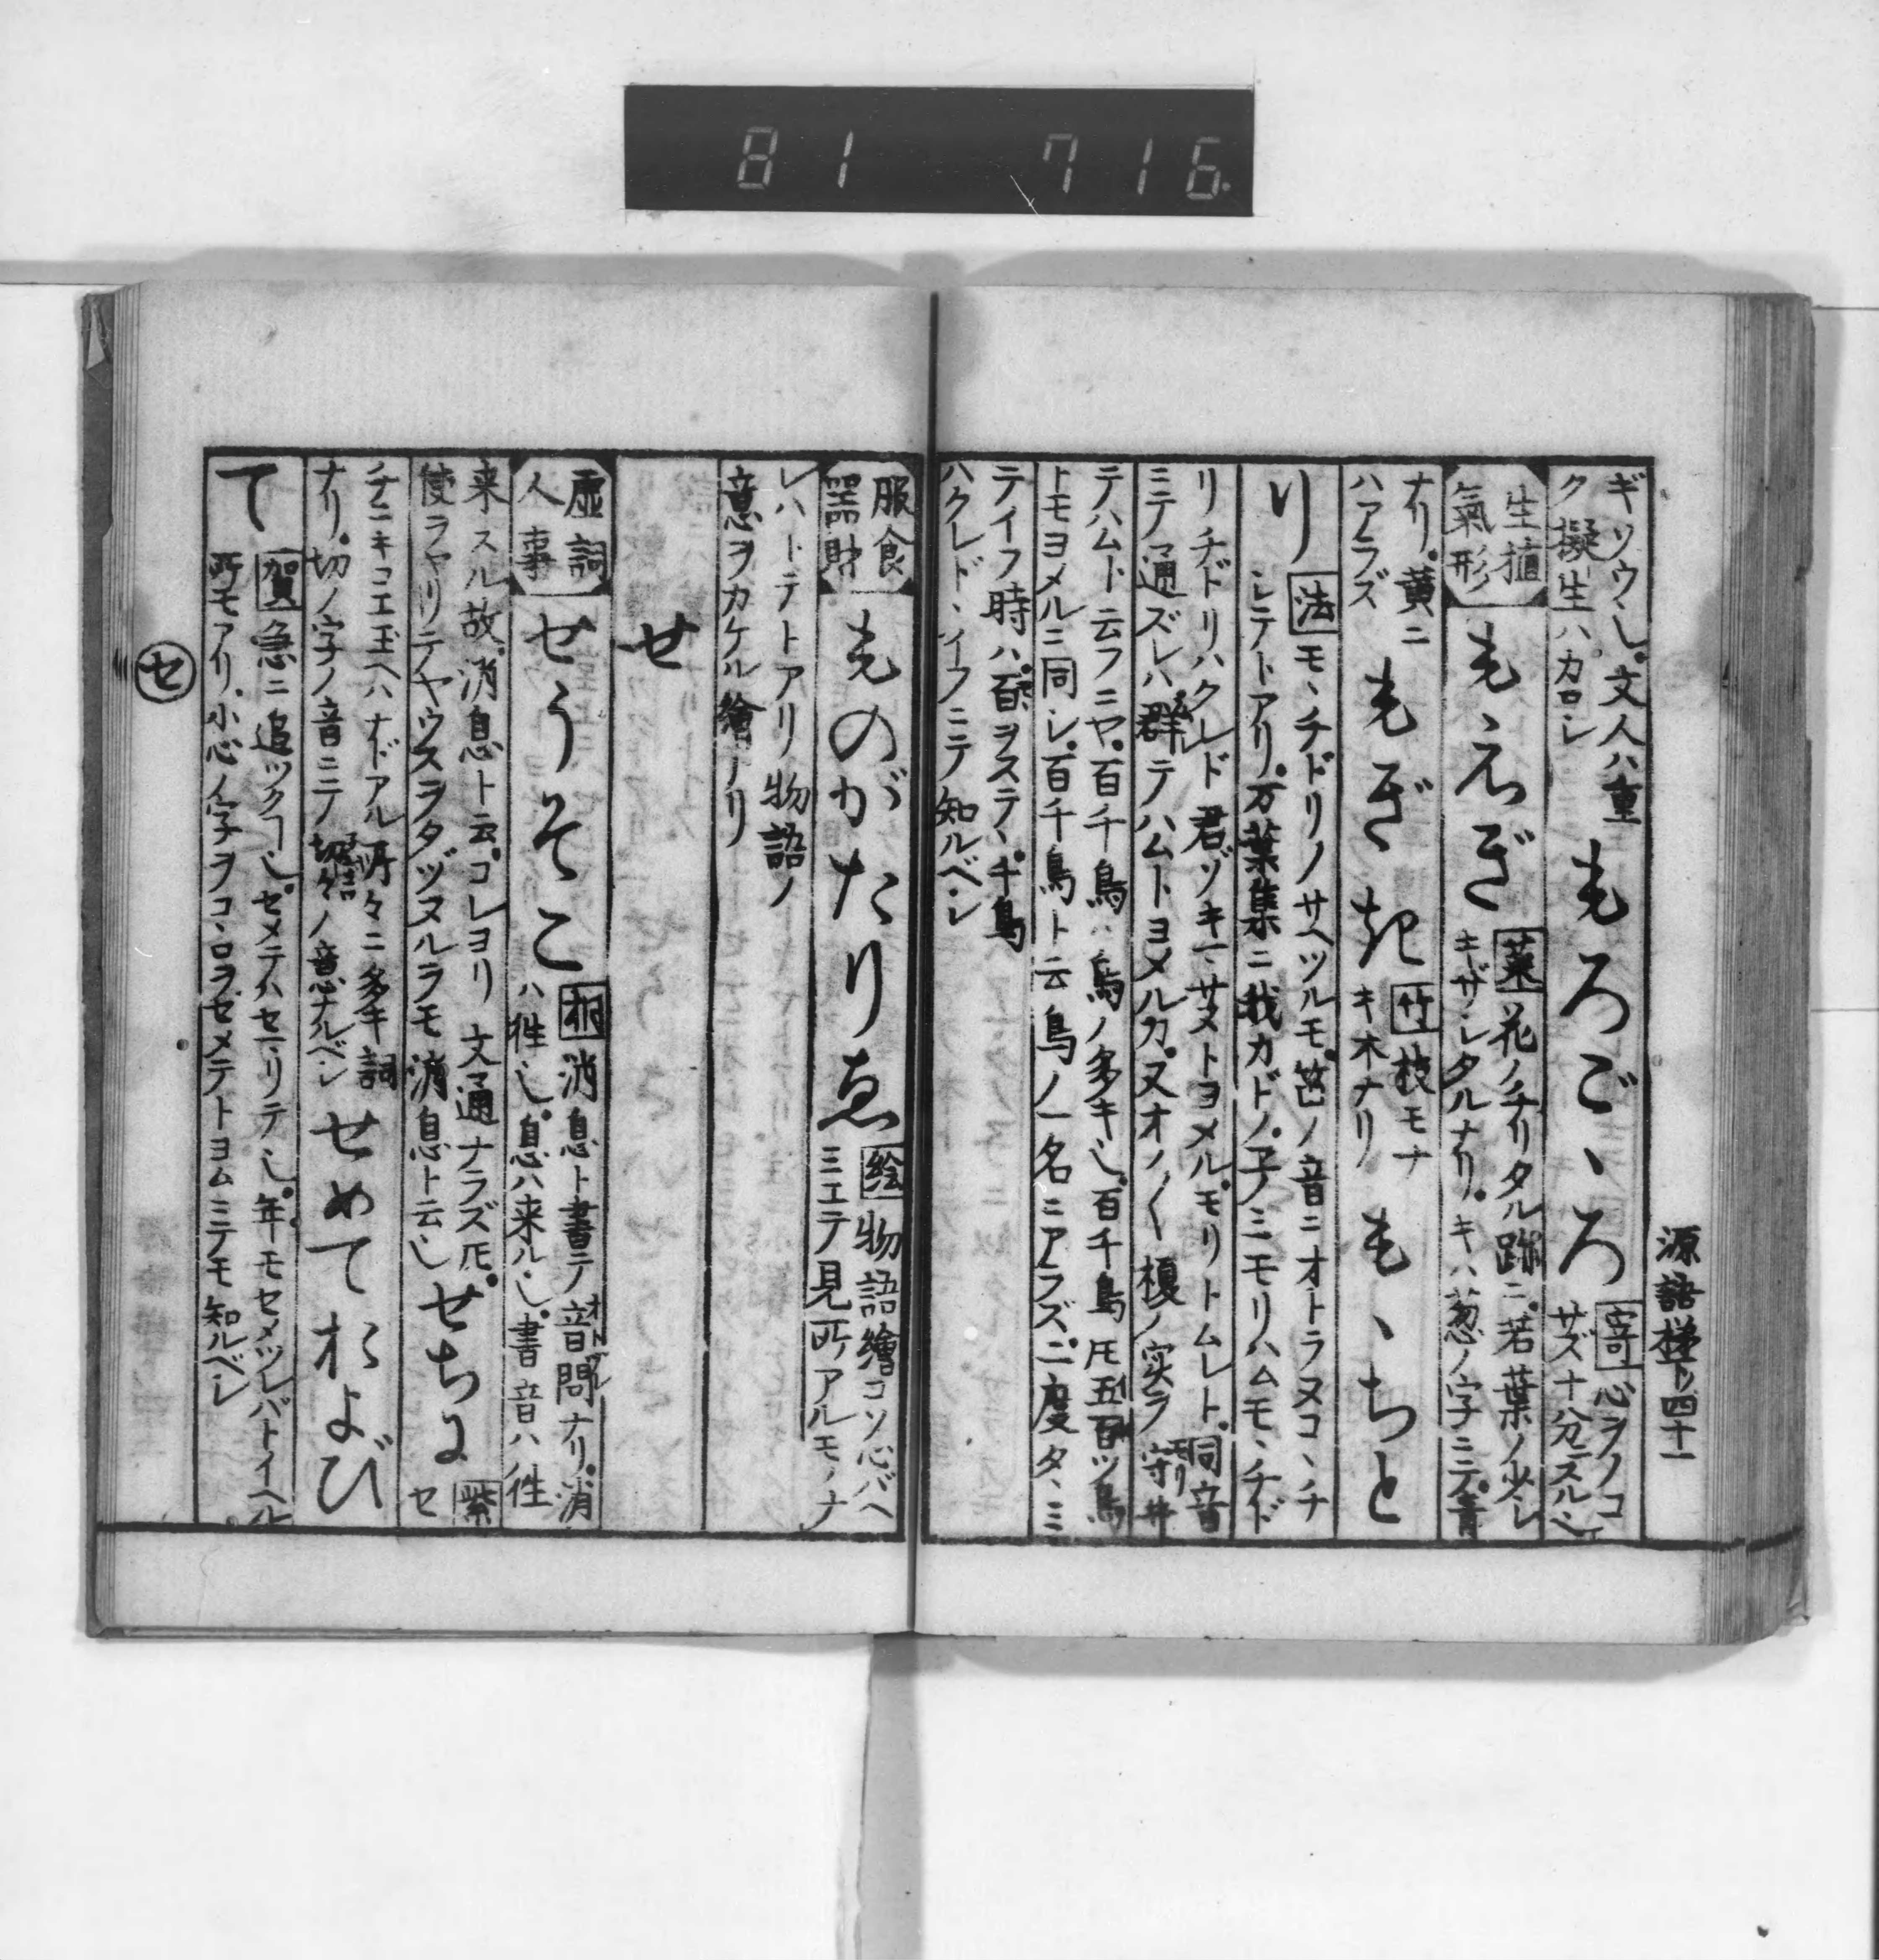 81 716
源語梯下ノ四十一
ギソウ也。文人ハ重
ク擬生ハカロシ
もろごゝろ
寄心ヲノコ
サズ十分ニスル也
生植
氣形
もえぎ
葵花ノチリタル跡ニ若葉ノ少シ
キザシタルナリ。キハ葱ノ字ニテ。青
ナリ。黄ニ
ハアラズ
もぎ木
竹枝モナ
キ木ナリ
もゝちと
り
法モヽチドリノサヘツルモ。笛ノ音ニオトラヌコヽチ
シテトアリ。万葉集ニ我カドノ。子ミモリハムモヽチド
リチドリハクレド君ゾキマサヌトヨメル。モリトムレト。同音
ミテ通ズレハ群テハムトヨメルカ。又オノ〱榎ノ実ヲ守井
テハムト云フニヤ。百千鳥ハ鳥ノ多キ也。百千鳥ㇳモ五百ツ鳥
トモヨメルニ同シ。百千鳥ト云鳥ノ一名ニアラズ。二度タヽミ
テイフ時ハ。百ヲステヽ。千鳥
ハクレドヽイフニテ知ルベシ
服食
器財
ものがたりゑ
絵物語繪コソ心バヘ
ミエテ見所アルモノナ
レハトテトアリ物語ノ
意ヲカケル繪ナリ
せ
虚詞
人事
せうそこ
桐消息ト書テ音問ナリ。消
ハ往也。息ハ来ル也。書音ハ往
来スル故。消息ト云。コレヨリ文通ナラズㇳモ。
使ラヤリテヤウスヲタヅヌルラモ消息ト云也
せちに
紫
セ
チニキコエ玉ヘハナドアル所々ニ多キ詞
ナリ。切ノ字ノ音ニテ切々ノ意ナルベシ
せめておよび
て
賀急ニ追ツク也。セメテハセマリテ也。年モセメツレバトイヘル
所モアリ。小心ノ字ヲコヽロヲゼメテトヨムミテモ知ルベシ
セ